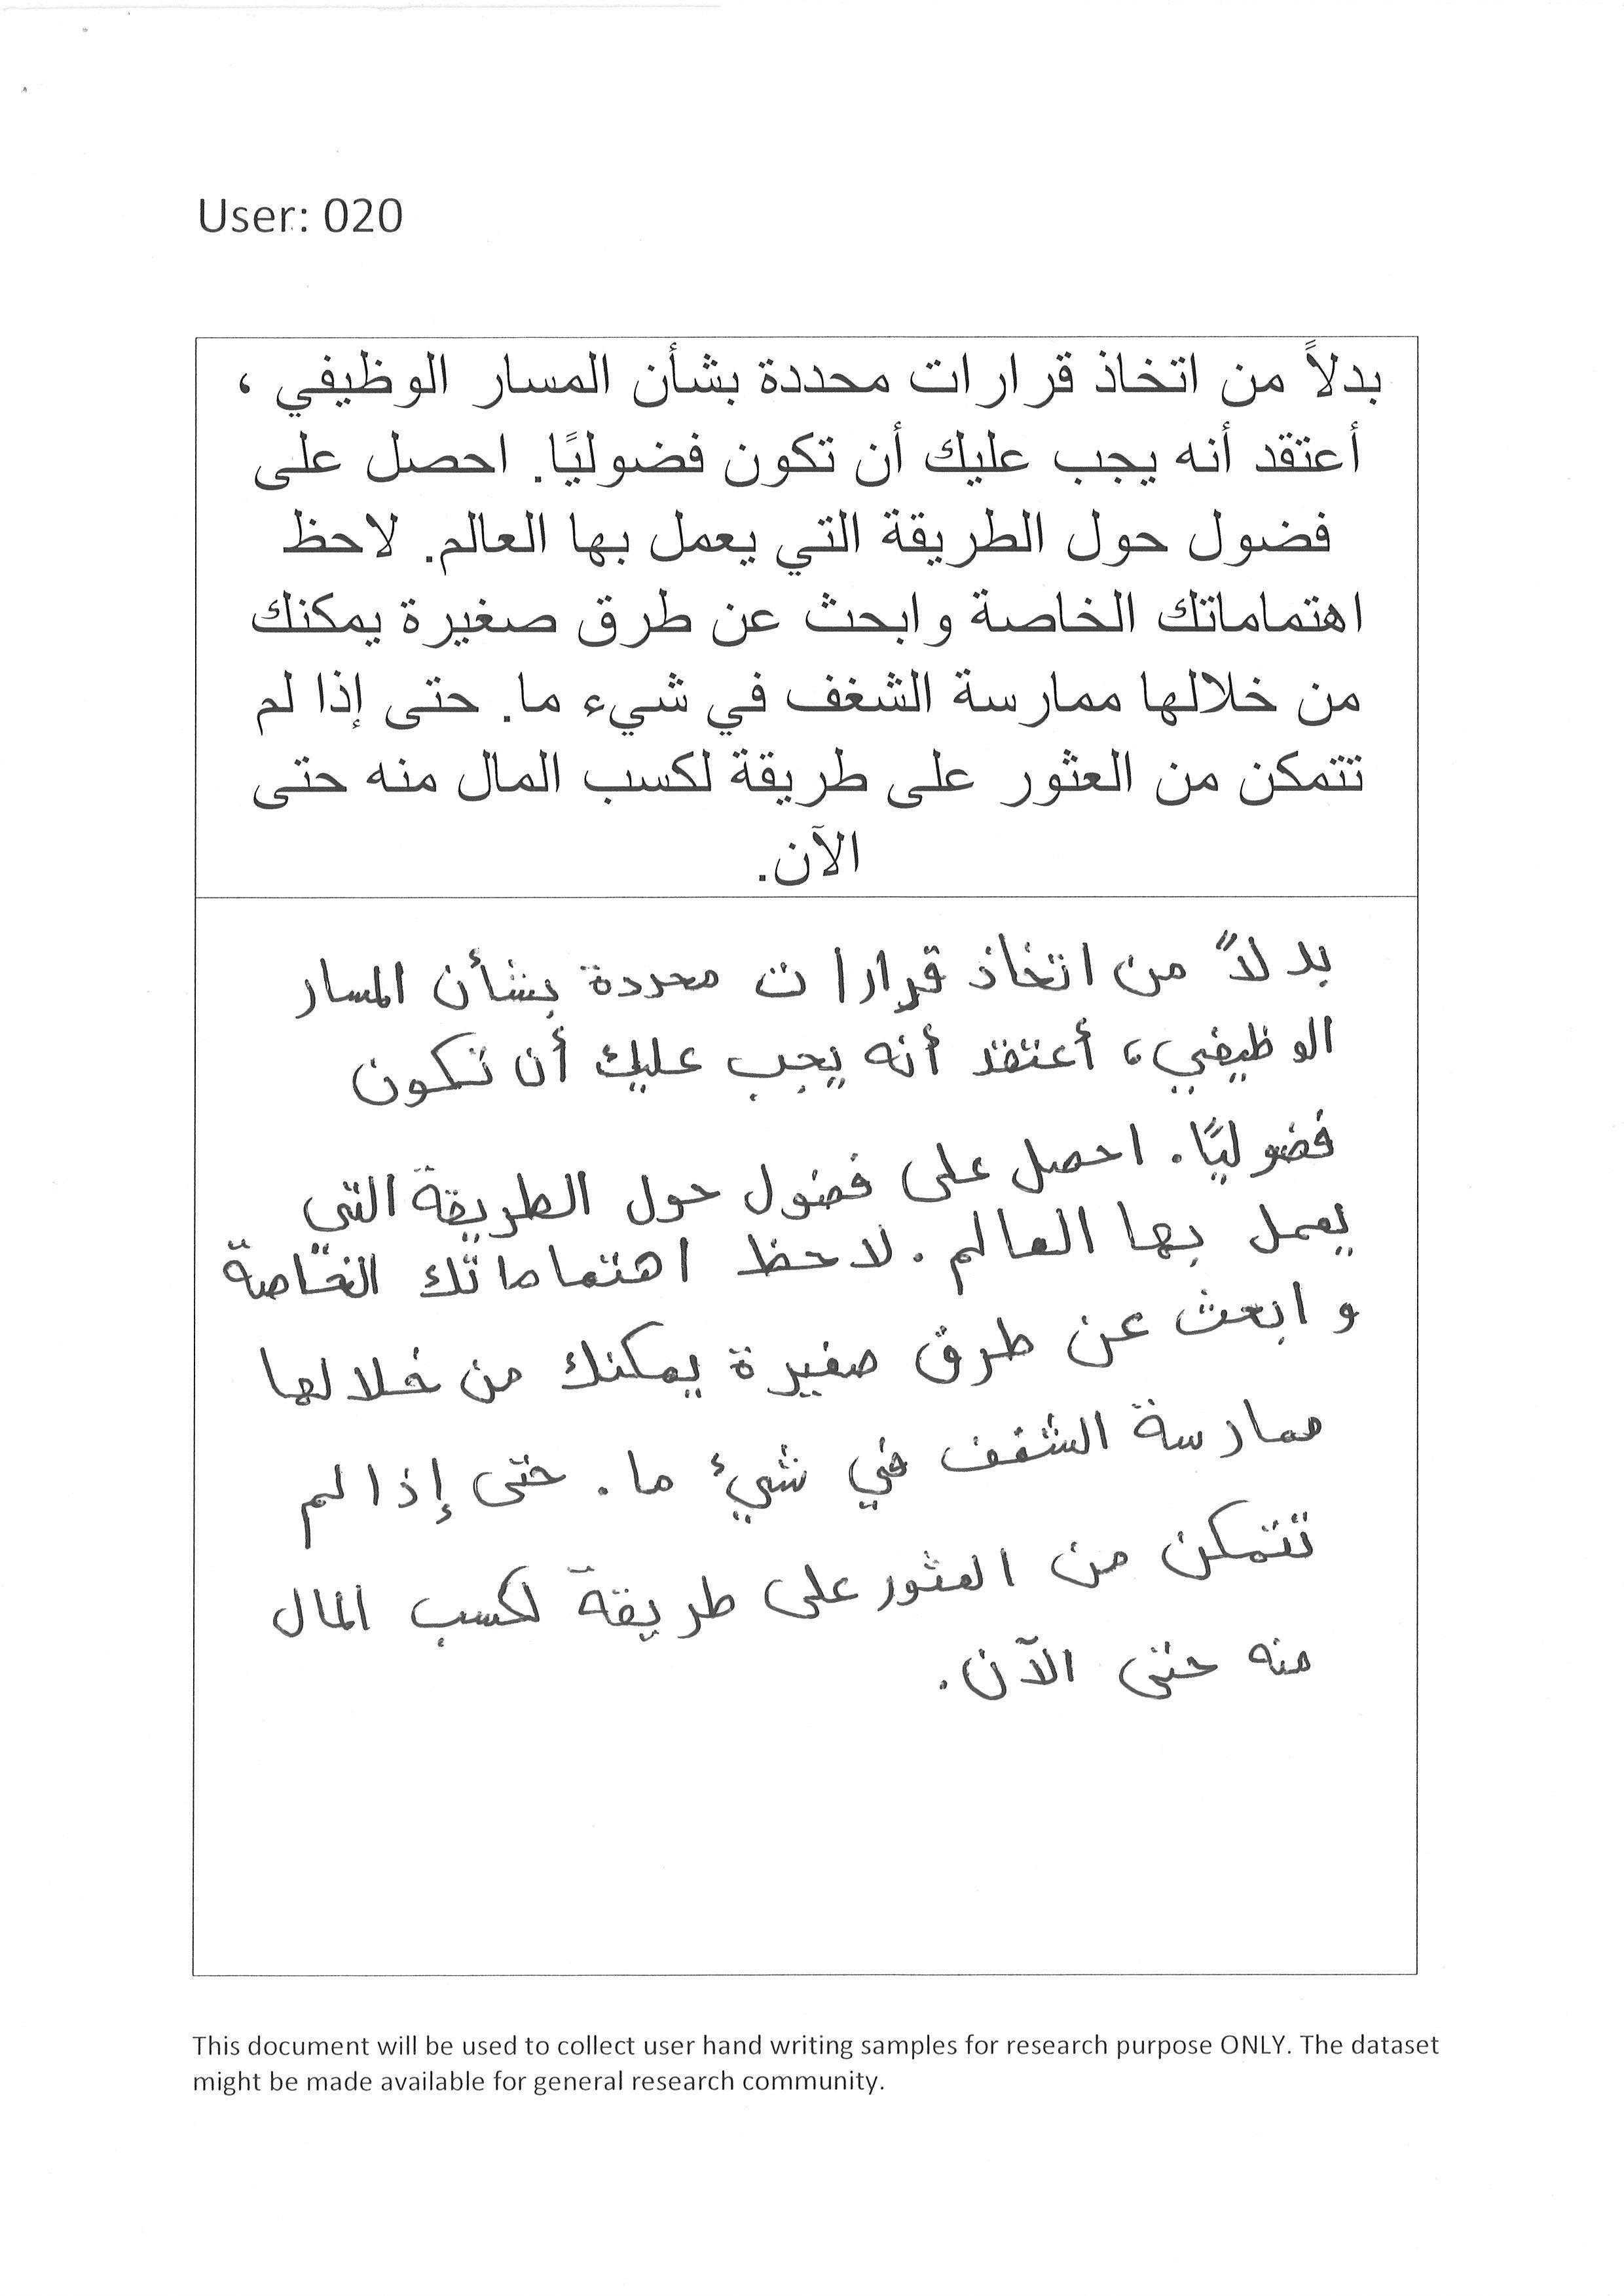 User: 020
بدلاً من اتخاذ قرارات محددة بشأن المسار الوظيفي ،
أعتقد أنه يجب عليك أن تكون فضوليًا. احصل على
فضول حول الطريقة التي يعمل بها العالم. لاحظ
اهتماماتك الخاصة وابحث عن طرق صغيرة يمكنك
من خلالها ممارسة الشغف في شيء ما. حتى إذا لم
تتمكن من العثور على طريقة لكسب المال منه حتى
الآن.
بدلاً من اتخاذ قرارات محددة بشأن المسار
الوظيفي، أعتقد أنه يجب عليك أن تكون
فضوليًا. احصل على فضول حول الطريقة التي
يعمل بها العالم. لاحظ اهتماماتك الخاصة
وابحث عن طرق صغيرة يمكنك من خلالها
ممارسة الشغف في شيئ ما. حتى إذا لم
تتمكن من العثور على طريقة لكسب المال
منه حتى الآن.
This document will be used to collect user hand writing samples for research purpose ONLY. The dataset
might be made available for general research community.